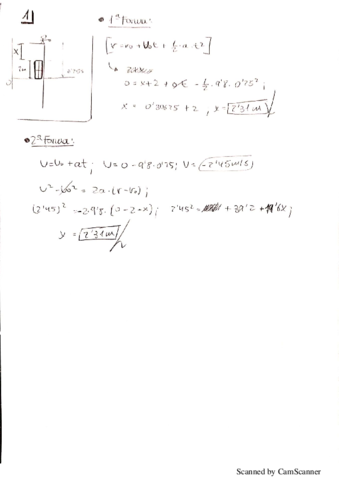 1)
• 1ª Forma:
[r = r₀ + v₀t + ½·a·t²]
x
2m
0 = x + 2 + 0·t - ½·9'8·0'75²;
x = 0'30675 + 2, x = 2'31m
• 2ª Forma:
v = v₀ + at; v = 0 - 9'8·0'75; v = -2'45m/s
v² - v₀² = 2a·(r - r₀);
(2'45)² = -2·9'8·(0 - 2 - x); 2'45² = + 39'2 + 19'6x;
x = 2'31m
Scanned by CamScanner